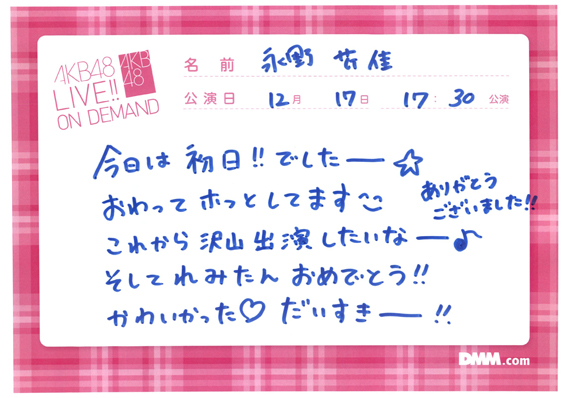 AKB48
LIVE!!
ON DEMAND
AKB
48
名前 永野 芹佳
公演日 12月 17日 17:30 公演
今日は 初日!! でしたー☆
おわって ホッとしてます
ありがとう
ございました!!
これから 沢山 出演 したいなー♪
そして れみたん おめでとう!!
かわいかった♡ だいすきー!!
DMM.com